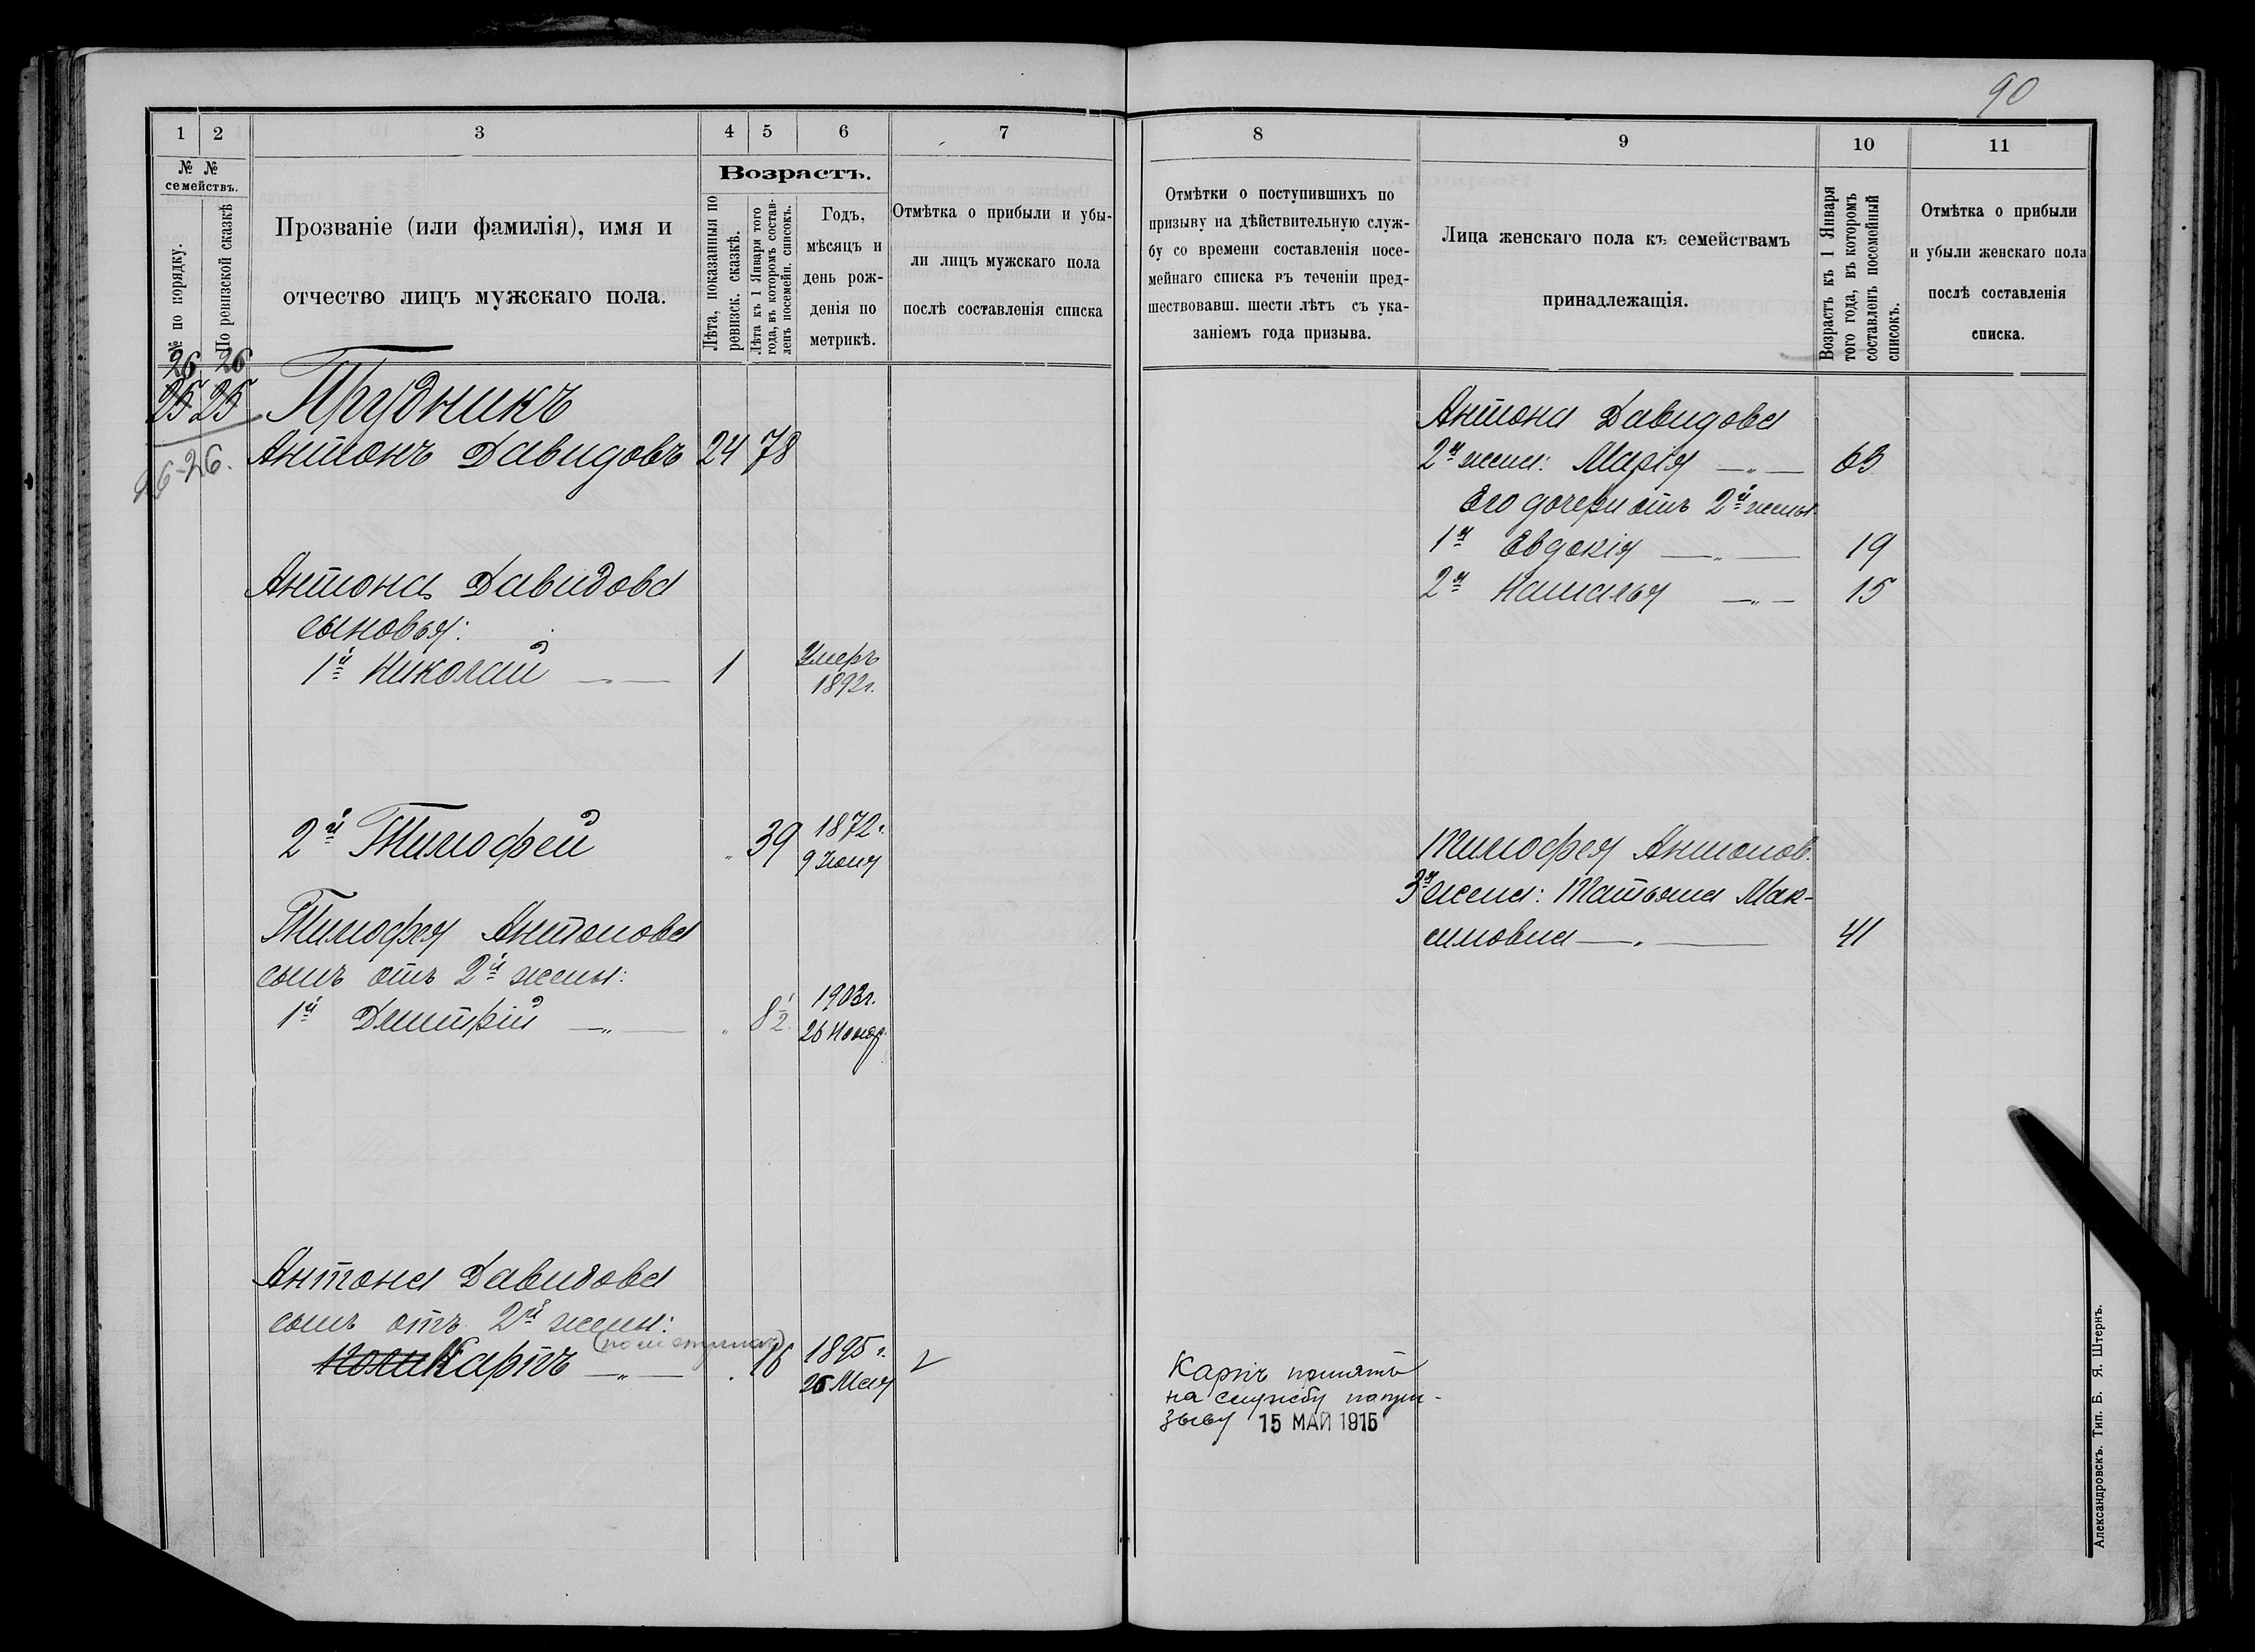 90
1 2 3 4 5 6 7
№ № семействъ.
№ по порядку.
По ревизской сказкѣ
Прозваніе (или фамилія), имя и
отчество лицъ мужскаго пола.
Возрастъ.
Лѣта, показанныя по
ревизск. сказкѣ.
Лѣта къ 1 Января того
года, въ которомъ состав-
ленъ посемейн. списокъ.
Годъ,
мѣсяцъ и
день рож-
денія по
метрикѣ.
Отмѣтка о прибыли и убы-
ли лицъ мужскаго пола
послѣ составленія списка
26 26
25 25 Прудникъ
Антонъ Давидовъ 24 78
26-26.
Антона Давидова
сыновья:
1й Николай —„— 1 Умеръ
1892г.
2й Тимофей „ 39 1872г.
9 Іюня
Тимофея Антонова
сынъ отъ 2й жены:
1й Дмитрій —„— „ 8½ 1903г.
26 Нояб.
Антона Давидова
сынъ отъ 2й жены:
Карпъ —„— 16 1895г.
26 Мая
8 9 10 11
Отмѣтки о поступившихъ по
призыву на дѣйствительную служ-
бу со времени составленія посе-
мейнаго списка въ теченіи пред-
шествовавш. шести лѣтъ съ ука-
заніемъ года призыва.
Лица женскаго пола къ семействамъ
принадлежащія.
Возрастъ къ 1 Января
того года, въ которомъ
составленъ посемейный
списокъ.
Отмѣтка о прибыли
и убыли женскаго пола
послѣ составленія
списка.
Антона Давидова
2я жена: Марія —„— 63
Его дочери отъ 2й жены
1я Евдокія —„— 19
2я Наталья —„— 15
Тимофея Антонов.
3я жена: Татьяна Мак-
симовна —„— 41
Карпъ принятъ
на службу попри-
зыву 15 МАЙ 1915
Александровскъ. Тип. Б. Я. Штернъ.